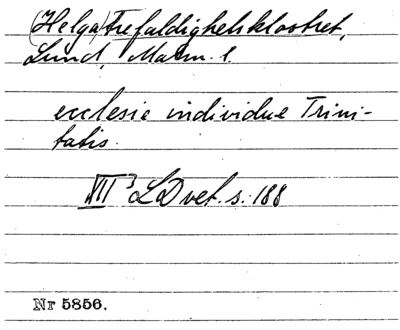 (Helga) Trefaldighetsklostret,
Lund, Malm. l.
ecclesie individue Trini-
tatis.
VII³ LD vet. s. 188
Nr 5856.